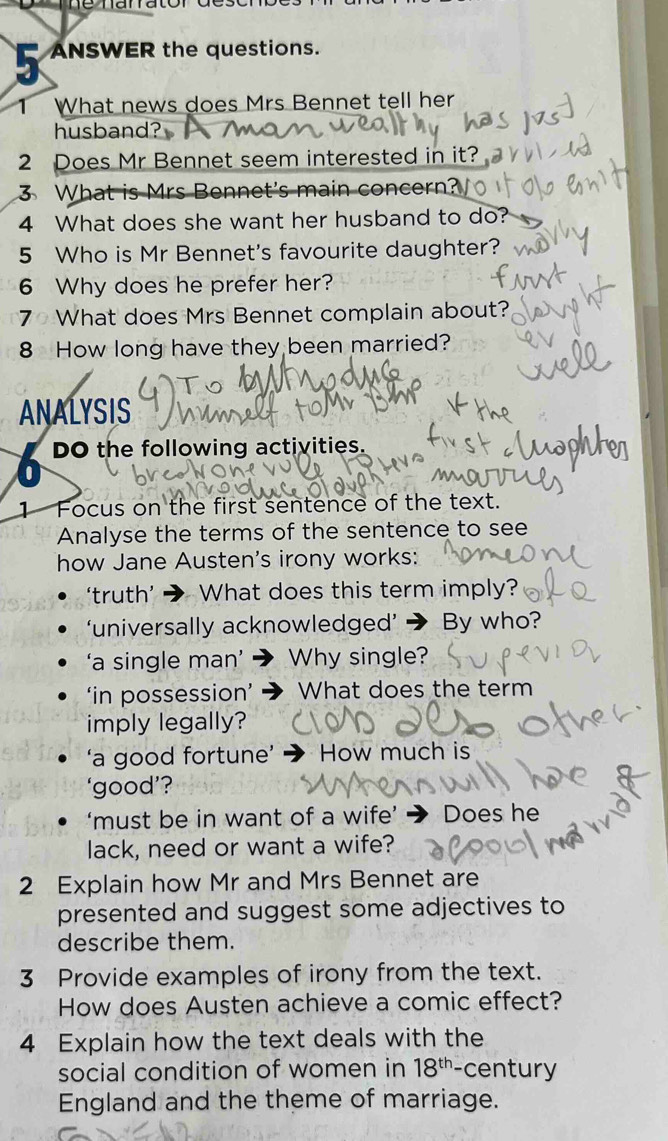 The narrator describes Mr and Mrs
5 ANSWER the questions.
1 What news does Mrs Bennet tell her
husband? A man wealthy has just
2 Does Mr Bennet seem interested in it? arrived
3 What is Mrs Bennet's main concern?
4 What does she want her husband to do?
5 Who is Mr Bennet's favourite daughter? marry
6 Why does he prefer her? first
7 What does Mrs Bennet complain about?
8 How long have they been married? well
4) To
ANALYSIS himself to Mr & the
6 DO the following activities. first
introduce marries
1 Focus on the first sentence of the text.
Analyse the terms of the sentence to see
how Jane Austen's irony works: Someone
• 'truth' ➔ What does this term imply? of a
• 'universally acknowledged' ➔ By who?
• 'a single man' ➔ Why single? superior
• 'in possession' ➔ What does the term
imply legally? class other
• 'a good fortune' ➔ How much is
'good'? will have
• 'must be in want of a wife' ➔ Does he
lack, need or want a wife? a good
2 Explain how Mr and Mrs Bennet are
presented and suggest some adjectives to
describe them.
3 Provide examples of irony from the text.
How does Austen achieve a comic effect?
4 Explain how the text deals with the
social condition of women in 18th-century
England and the theme of marriage.